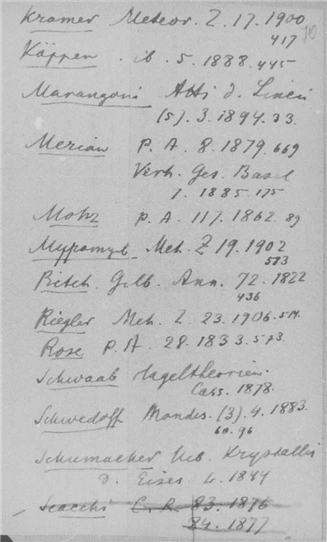 Kramer Meteor. Z. 17. 1900
417
70
Köppen. ib. 5. 1888. 445
Marangoni Atti d. Lincei
(5). 3. 1894. 33
Merian P. A. 8. 1879. 669
Verh. Ges. Basel
7. 1885. 175
Mohr P. A. 117. 1862. 89
Met. Z 19. 1902
573
Gilb. Ann. 72. 1822
436
Riegler Met. Z. 23. 1906.
Rose P. A. 28. 1833. 573
Schwaab Hageltheorien.
Cass. 1878.
Schwedoff Mondes. (3). 4. 1883.
60. 96
Schumacher Krystallis
d. Eises 4. 1844
Scacchi C. R. 83. 1876
84. 1877